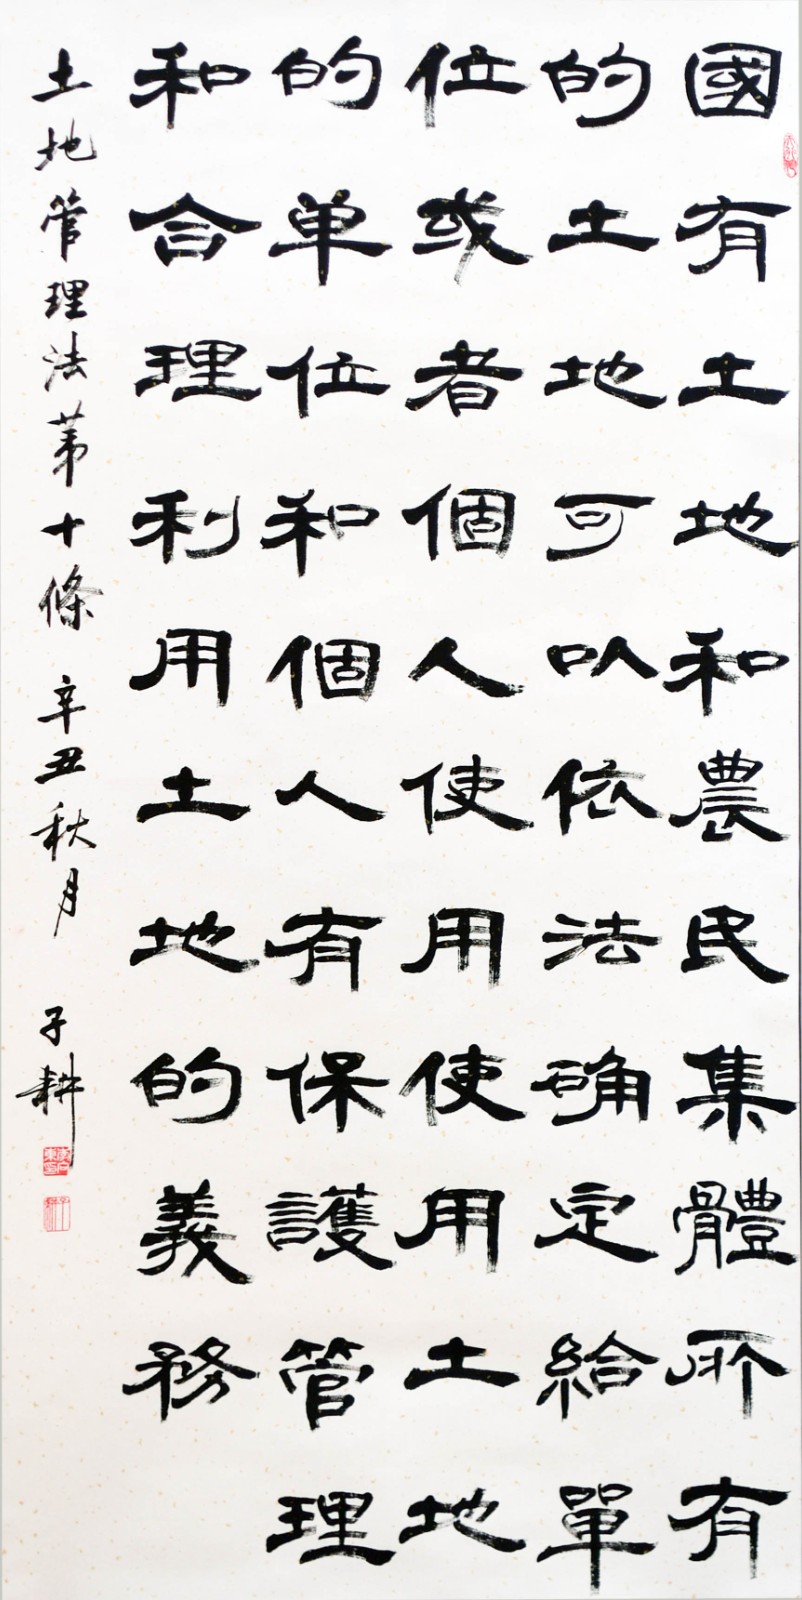 國有土地和農民集體所有
的土地可以依法确定給單
位或者個人使用使用土地
的单位和個人有保護管理
和合理利用土地的義務
土地管理法苐十條 辛丑秋月 子耕